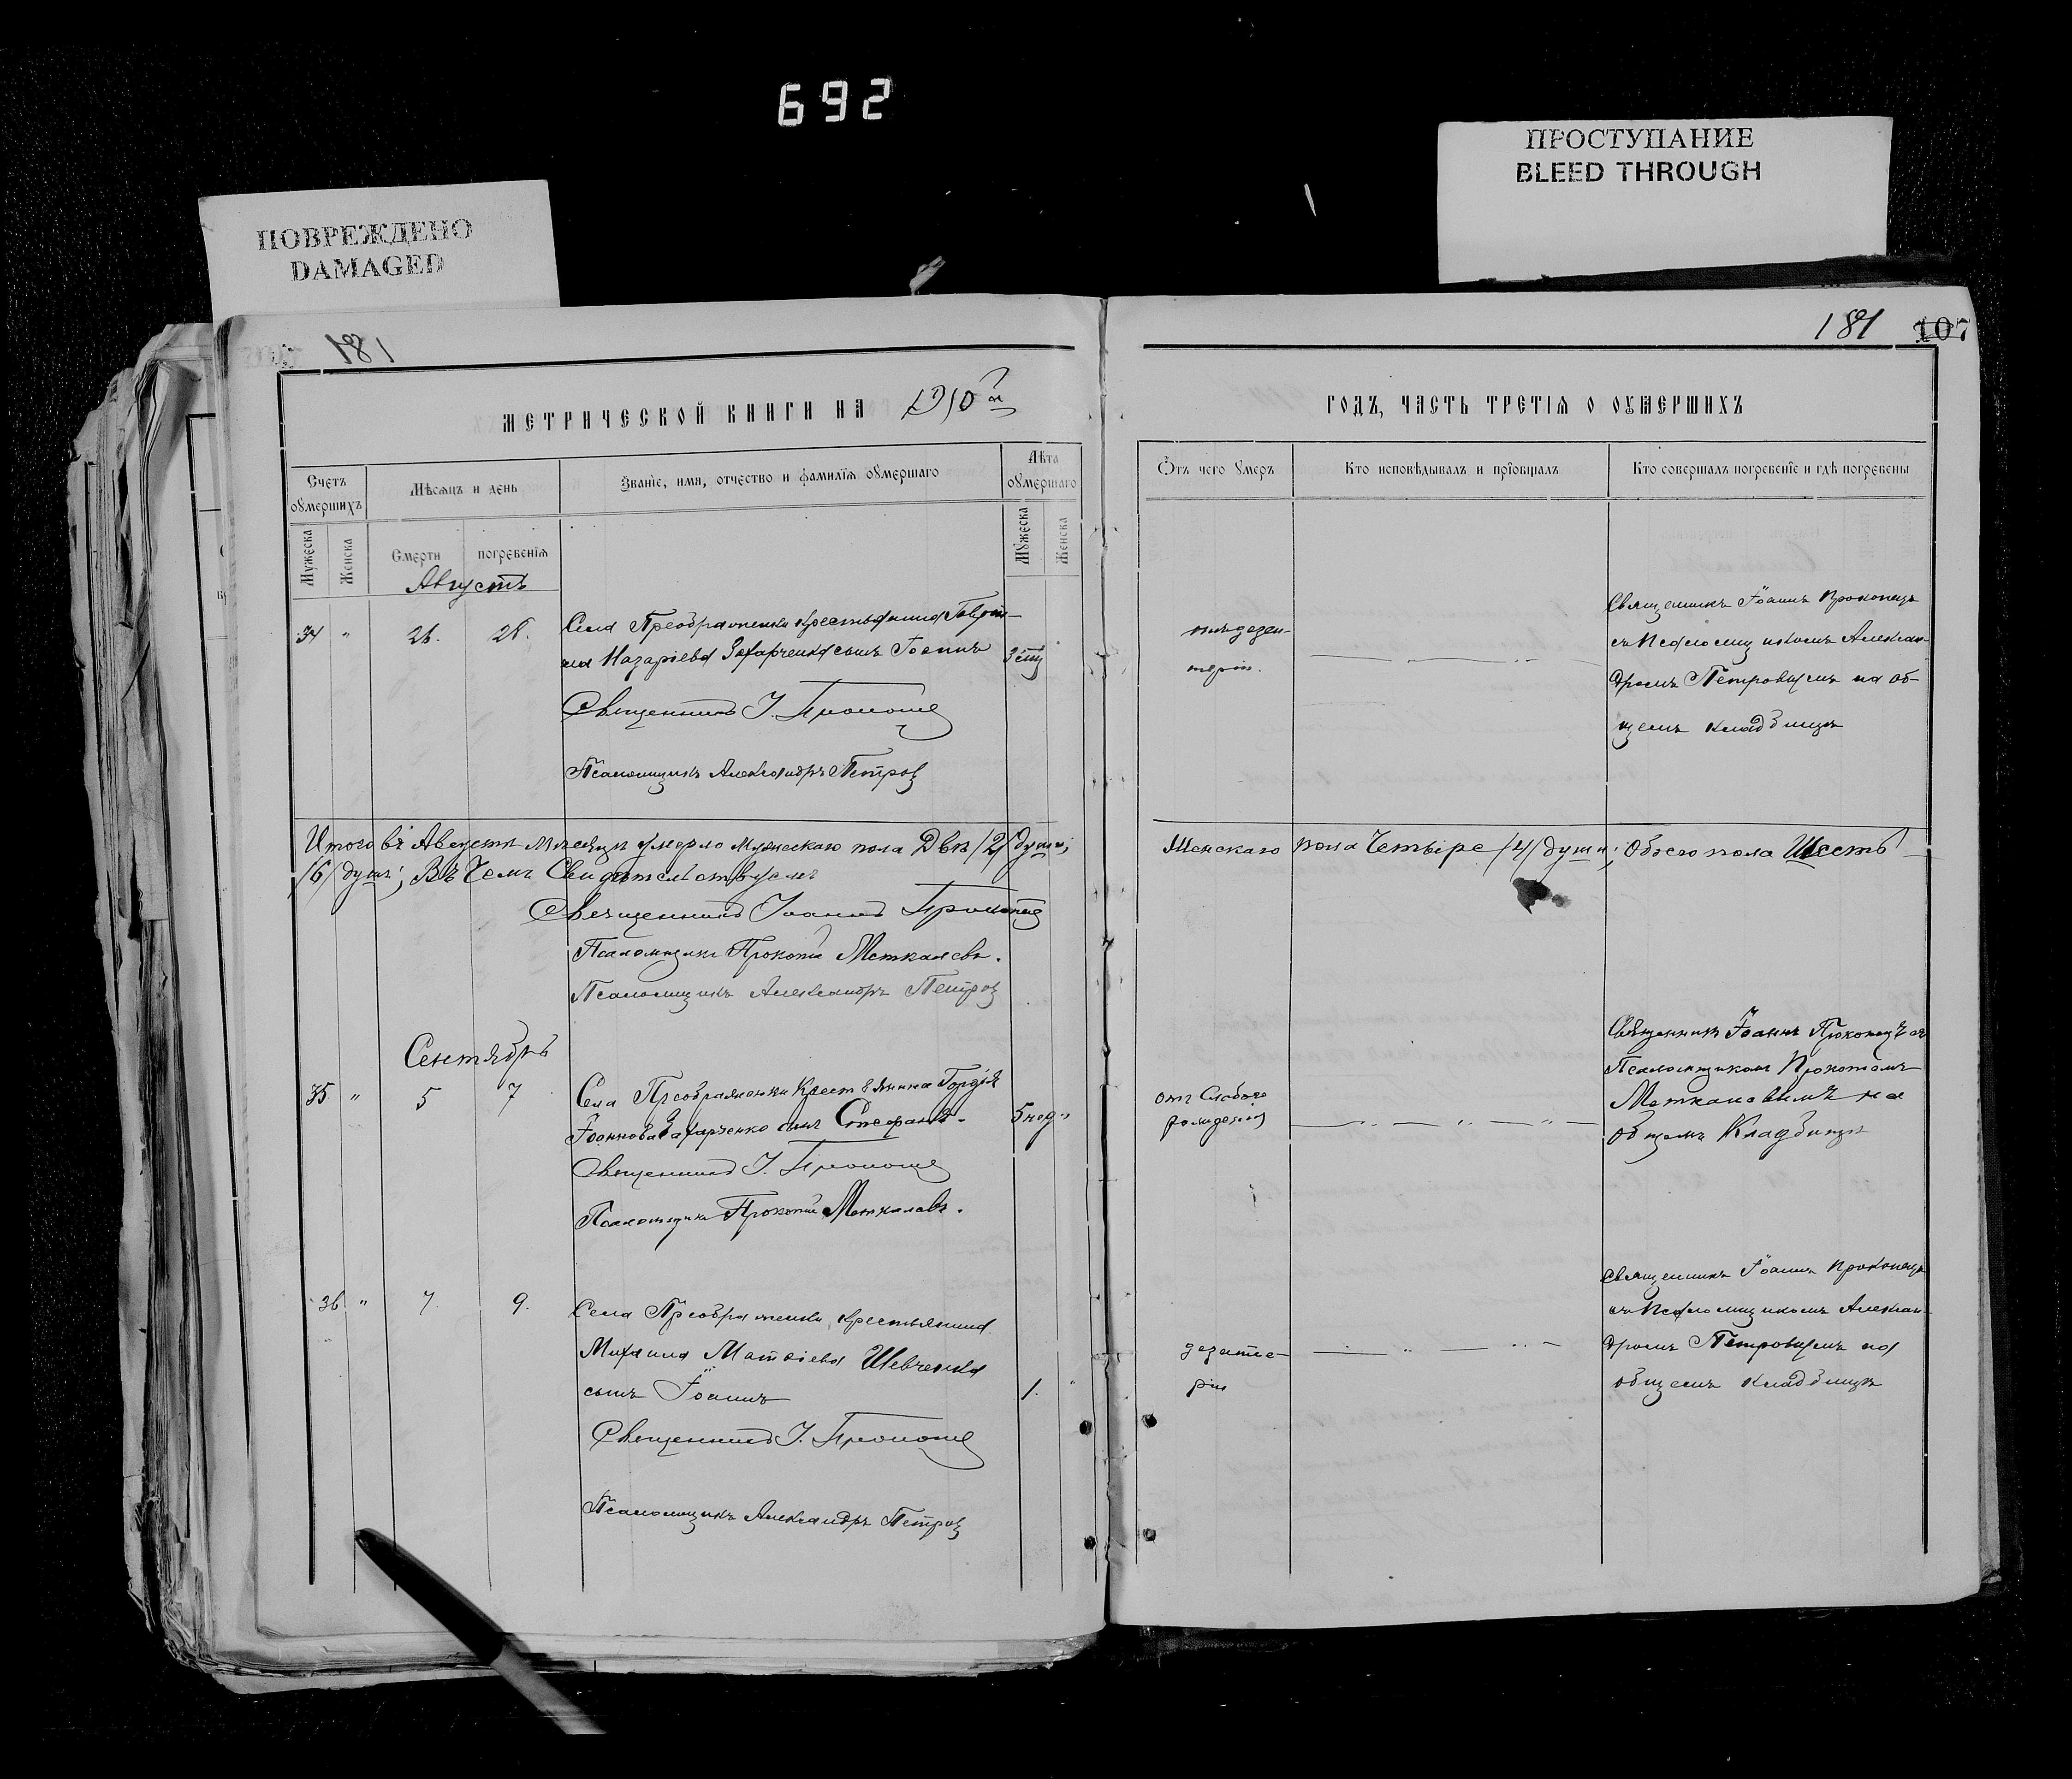 692
ПРОСТУПАНИЕ
BLEED THROUGH
ПОВРЕЖДЕНО
DAMAGED
181
181 107
МЕТРИЧЕСКОЙ КНИГИ НА 1910 й
ГОДЪ, ЧАСТЬ ТРЕТІЯ О ОУМЕРШИХЪ
Счетъ оумершихъ
Мѣсяцъ и день
Званіе, имя, отчество и фамилія оумершаго
Лѣта оумершаго
Отъ чего умеръ
Кто исповѣдывалъ и пріобщалъ
Кто совершалъ погребеніе и гдѣ погребены
Мужеска
Женска
Смерти
погребенія
Мужеска
Женска
Августъ
34 " 26. 28.
Села Преображенки крестьянина Гаврі-
ила Назаріева Захарченка сынъ Іоаннъ
Священникъ І. Прокопец
Псаломщикъ Александръ Петров
дезен-
теріи.
Священникъ Іоаннъ Прокопецъ
съ Псаломщикомъ Алексан-
дромъ Петровымъ на об-
щемъ кладбищѣ
Итого въ Августѣ мѣсяцѣ умерло мужескаго пола Двѣ /2/ души; Женскаго пола Четыре /4/ души; Обоего пола Шесть
/6/ душъ; Въ Чемъ Свидѣтельствуемъ
Священникъ Іоаннъ Прокопец
Псаломщикъ Прокопій Меткалевъ.
Псаломщикъ Александръ Петров
Сентябрь
35 " 5 7
Села Преображенки Крестьянина Гордія
Іоаннова Захарченко сынъ Стефанъ.
5 нед.
Священникъ І. Прокопец
Псаломщикъ Прокопій Меткалевъ.
отъ Слабаго
рожденія
Священникъ Іоаннъ Прокопецъ съ
Псаломщикомъ Прокопіемъ
Меткалевымъ на
общемъ Кладбищѣ
36 " 7 9.
Села Преображенки, крестьянина
Михаила Матвіева Шевченка
сынъ Іоаннъ
1. "
Священникъ І. Прокопец
Псаломщикъ Александръ Петров
дезенте-
ріи
Священникъ Іоаннъ Прокопецъ
съ Псаломщикомъ Алексан-
дромъ Петровымъ на
общемъ кладбищѣ